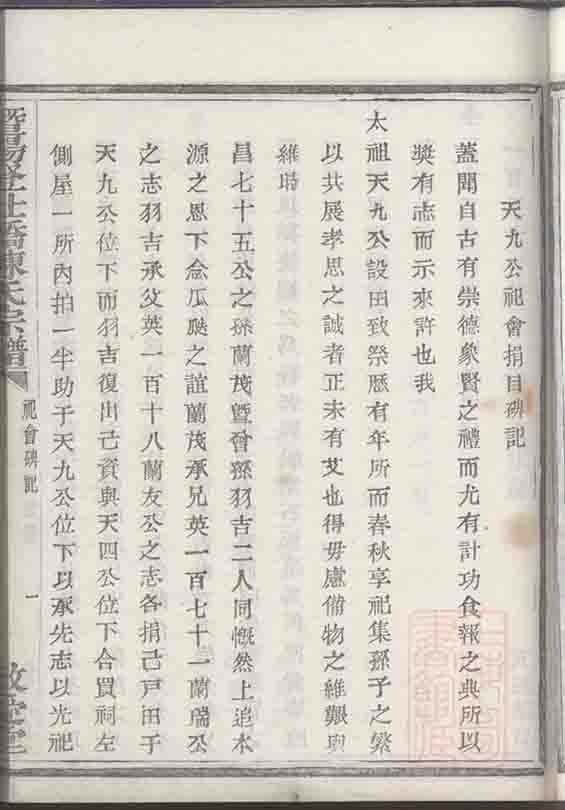 天九公祀會捐目碑記
蓋聞自古有崇德象賢之禮而尤有計功食報之典所以
獎有志而示來許也我
太祖天九公設田致祭歷有年所而春秋享祀集孫子之繁
以共展孝思之誠者正未有艾也得毋慮備物之維艱與
維時
昌七十五公之孫蘭茂曁曾孫羽吉二人同慨然上追本
源之恩下念瓜瓞之誼蘭茂承兄英一百七十一蘭瑞公
之志羽吉承父英一百十八蘭友公之志各捐己戸田于
天九公位下而羽吉復出己資與天四公位下合買祠左
側屋一所內拍一半助于天九公位下以承先志以光祀
陳氏宗譜
祀會碑記
一
敘
堂